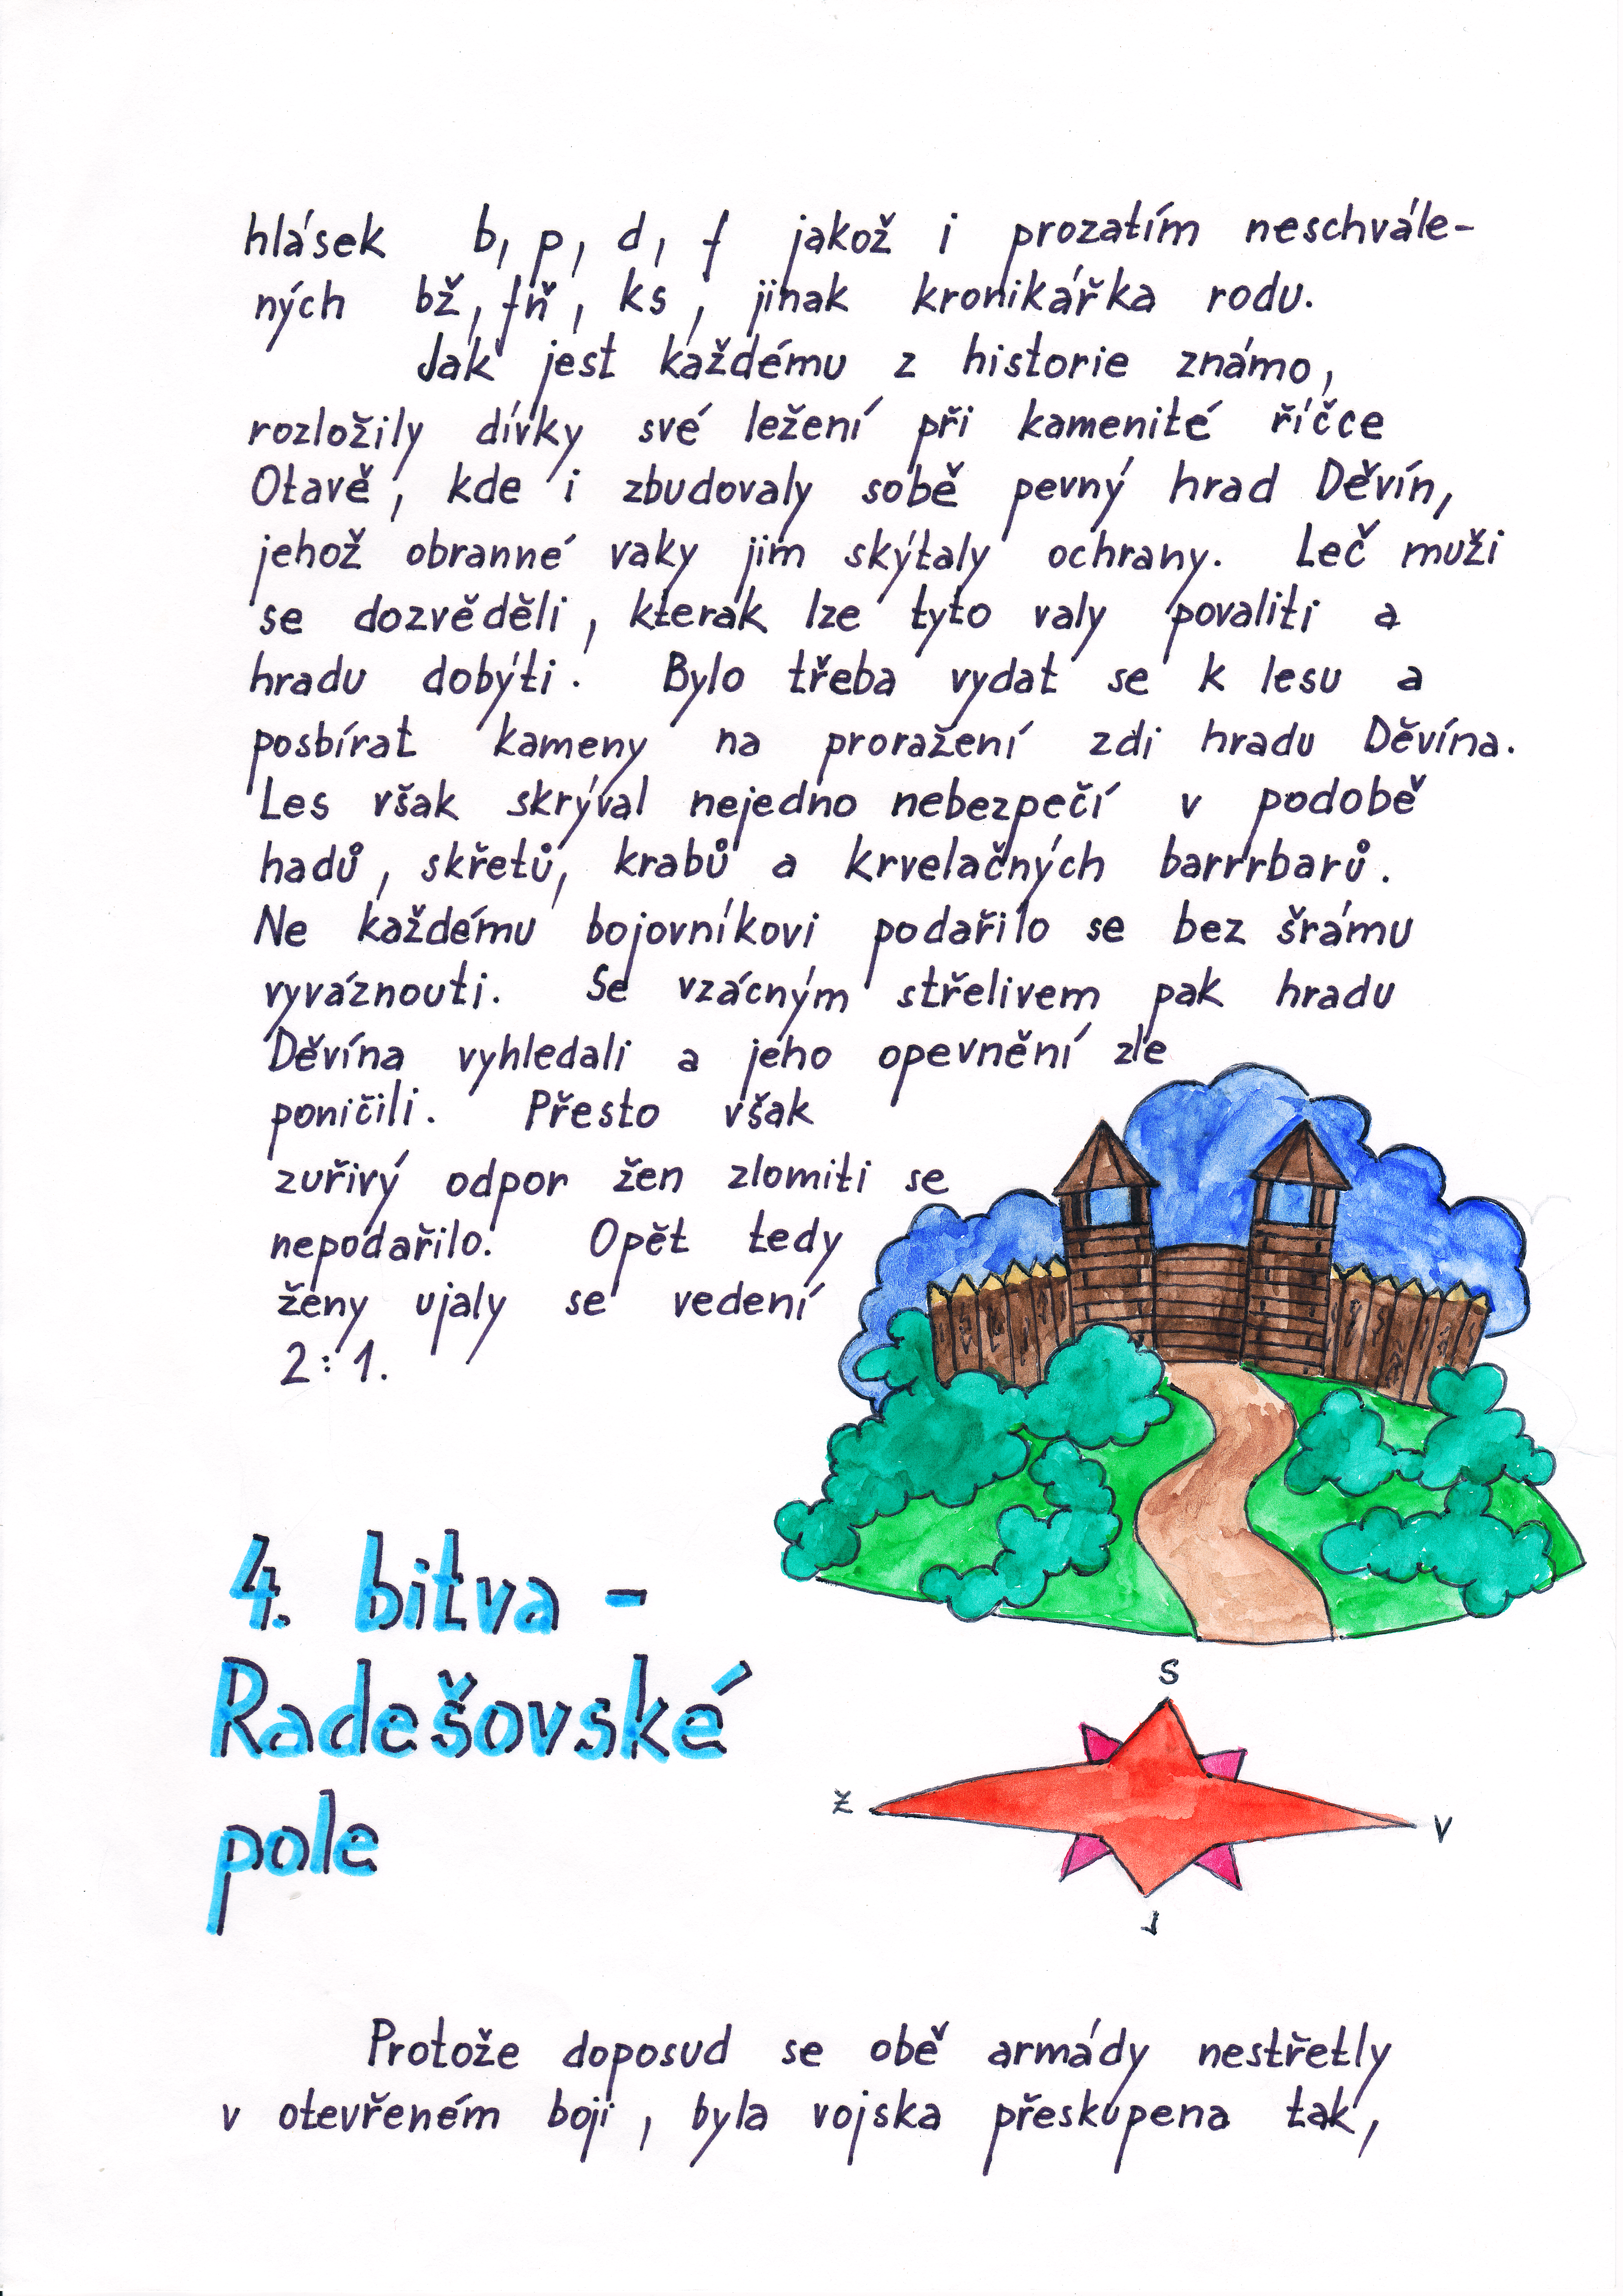 hlásek b, p, d, f jakož i prozatím neschvále-
ných bž, fň, ks, jinak kronikářka rodu.
Jak jest každému z historie známo,
rozložily dívky své ležení při kamenité říčce
Otavě, kde i zbudovaly sobě pevný hrad Děvín,
jehož obranné vaky jim skýtaly ochrany. Leč muži
se dozvěděli, kterak lze tyto valy povaliti a
hradu dobýti. Bylo třeba vydat se k lesu a
posbírat kameny na proražení zdi hradu Děvína.
Les však skrýval nejedno nebezpečí v podobě
hadů, skřetů, krabů a krvelačných barrrbarů.
Ne každému bojovníkovi podařilo se bez šrámu
vyváznouti. Se vzácným střelivem pak hradu
Děvína vyhledali a jeho opevnění zle
poničili. Přesto však
zuřivý odpor žen zlomiti se
nepodařilo. Opět tedy
ženy ujaly se vedení
2:1.
4. bitva -
Radešovské
pole
S
Z
V
J
Protože doposud se obě armády nestřetly
v otevřeném boji, byla vojska přeskupena tak,